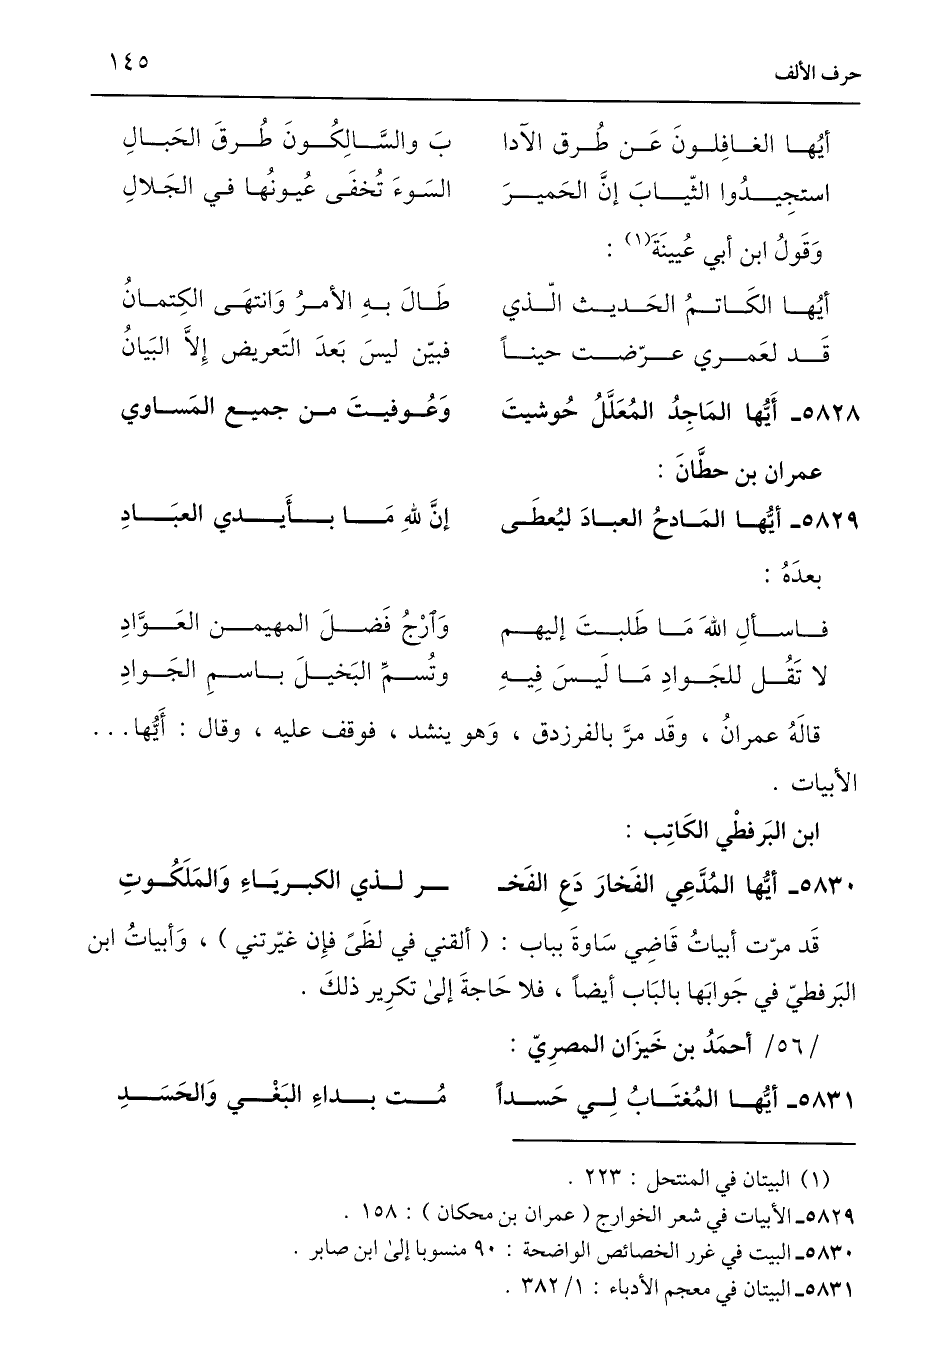 حرف الألف ١٤٥
أيُّهــا الغــافِلــونَ عَــن طُــرق الآدا بَ والسَّــالِكُــونَ طُــرقَ الخَبــالِ
استجيــدُوا الثّيــابَ إنَّ الحَميــرَ السَوءَ تُخفَــى عُيونُهــا فــي الجَلالِ
وَقَولُ ابن أبي عُيينَةَ(١) :
أيُهــا الكَـاتــمُ الحَـديــث الّــذي طَــالَ بــهِ الأمــرُ وَانتهَــى الكِتمــانُ
قَــد لعَمــري عــرّضــت حينــاً فبيّن ليسَ بَعدَ التَعريض إلاَّ البَيانُ
٥٨٢٨ـ أَيُّها المَاجِدُ المُعَلَّلُ حُوشيتَ وَعُــوفيــتَ مــن جميــع المَســاوي
عمران بن حطَّانَ :
٥٨٢٩ـ أيُّهــا المَـادحُ العبـادَ ليُعطَــى إنَّ للهِ مَــا بــأَيــدي العبَــادِ
بعدَهُ :
فــاســألِ اللهَ مَــا طَلبــتَ إليهــم وَٱرْجُ فَضــلَ المهيمــن العَــوَّادِ
لا تَقُــل للجَــوادِ مَــا لَيــسَ فِيــهِ وتُســمِّ البَخيــلَ بــاســمِ الجَــوادِ
قالَهُ عمرانُ ، وقَد مرَّ بالفرزدق ، وَهو ينشد ، فوقف عليه ، وقال : أَيُّها...
الأبيات .
ابن البَرفطْي الكَاتِب :
٥٨٣٠ـ أيُّها المُدَّعِي الفَخارَ دَعِ الفَخـ ــر لــذي الكبــريَــاءِ وَالمَلَكُــوتِ
قَد مرّت أبياتُ قَاضِي سَاوةَ بباب : ( ألقني في لظَىً فإن غيّرتني ) ، وَأبياتُ ابن
البَرفطيّ في جَوابَها بالبَاب أيضاً ، فلا حَاجةَ إلىٰ تكرِير ذلكَ .
/٥٦/ أحمَدُ بن خَيرَان المصرِيّ :
٥٨٣١ـ أيُّهــا المُغتَــابُ لــي حَســداً مُــت بــداءِ البَغْــي وَالحَسَــدِ
(١) البيتان في المنتحل : ٢٢٣ .
٥٨٢٩ـ الأبيات في شعر الخوارج ( عمران بن محكان ) : ١٥٨ .
٥٨٣٠ـ البيت في غرر الخصائص الواضحة : ٩٠ منسوبا إلىٰ ابن صابر .
٥٨٣١ـ البيتان في معجم الأدباء : ١/ ٣٨٢ .